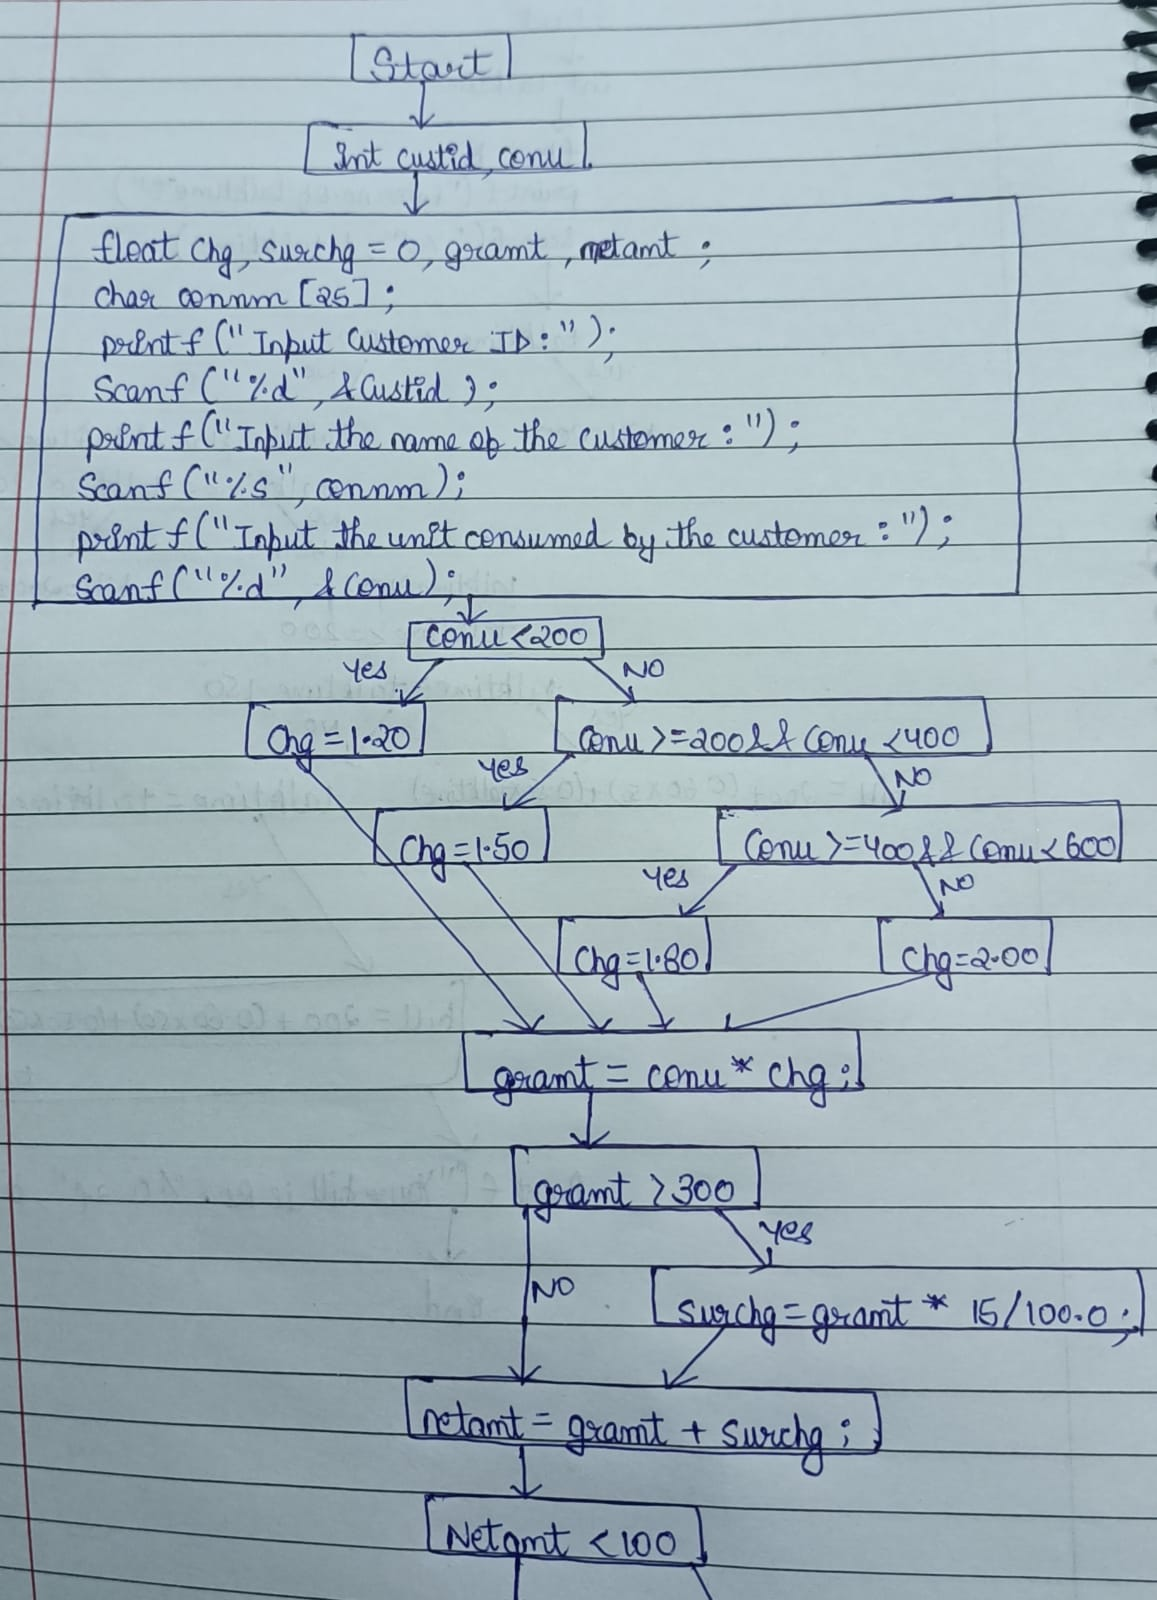 Start
Int custid, conu
float chg, surchg = 0, gramt, netamt ;
char connm [25] ;
printf ("Input Customer ID : ") ;
Scanf ("%d", &Custid ) ;
printf ("Input the name of the customer : ") ;
Scanf ("%s", connm) ;
printf ("Input the unit consumed by the customer : ") ;
Scanf ("%d", & Conu) ;
Conu < 200
Yes NO
Chg = 1.20 Conu >= 200 && Conu < 400
Yes NO
Chg = 1.50 Conu >= 400 && Conu < 600
Yes NO
Chg = 1.80 Chg = 2.00
gramt = conu * chg ;
gramt > 300
Yes
NO
Surchg = gramt * 15/100.0 ;
netamt = gramt + Surchg ;
Netamt < 100